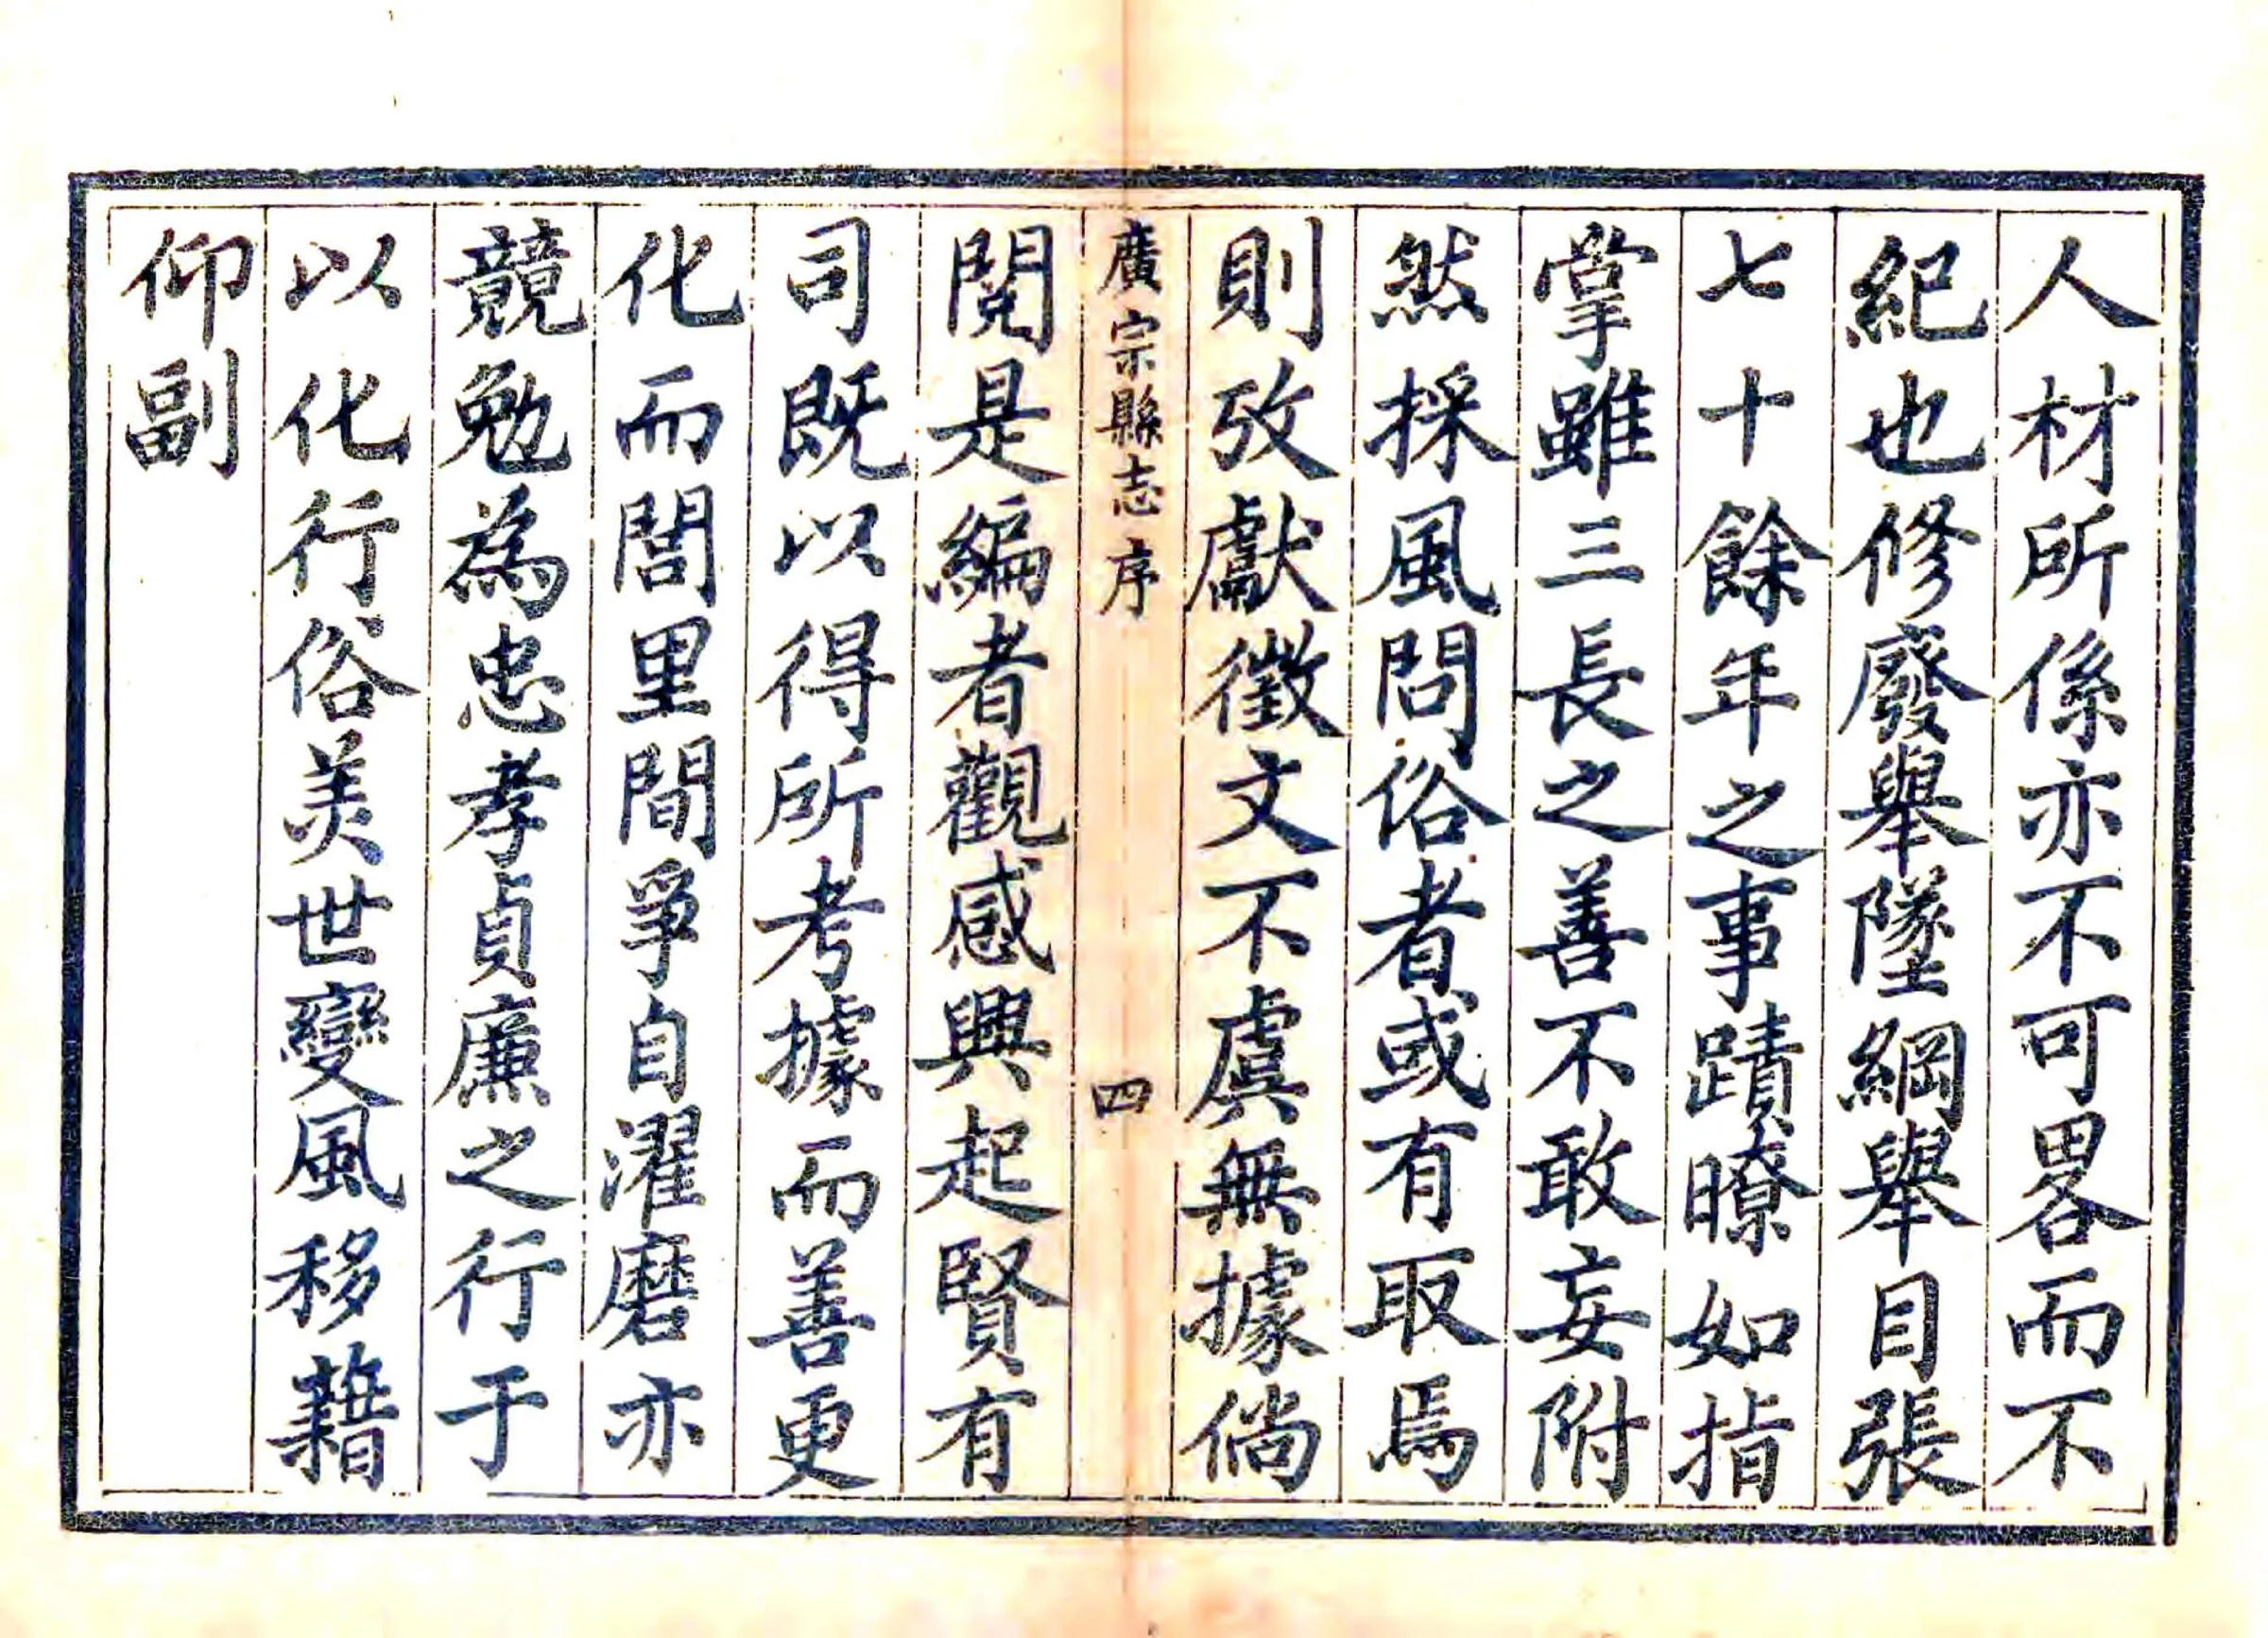 人材所係亦不可畧而不
紀也修廢舉墜綱舉目張
七十餘年之事蹟瞭如指
掌雖三長之善不敢妄附
然採風問俗者或有取焉
則攷獻徵文不虞無據倘
廣宗縣志序 四
閱是編者觀感興起賢有
司既以得所考據而善更
化而閭里間爭自濯磨亦
競勉為忠孝貞廉之行于
以化行俗美世變風移藉
仰副